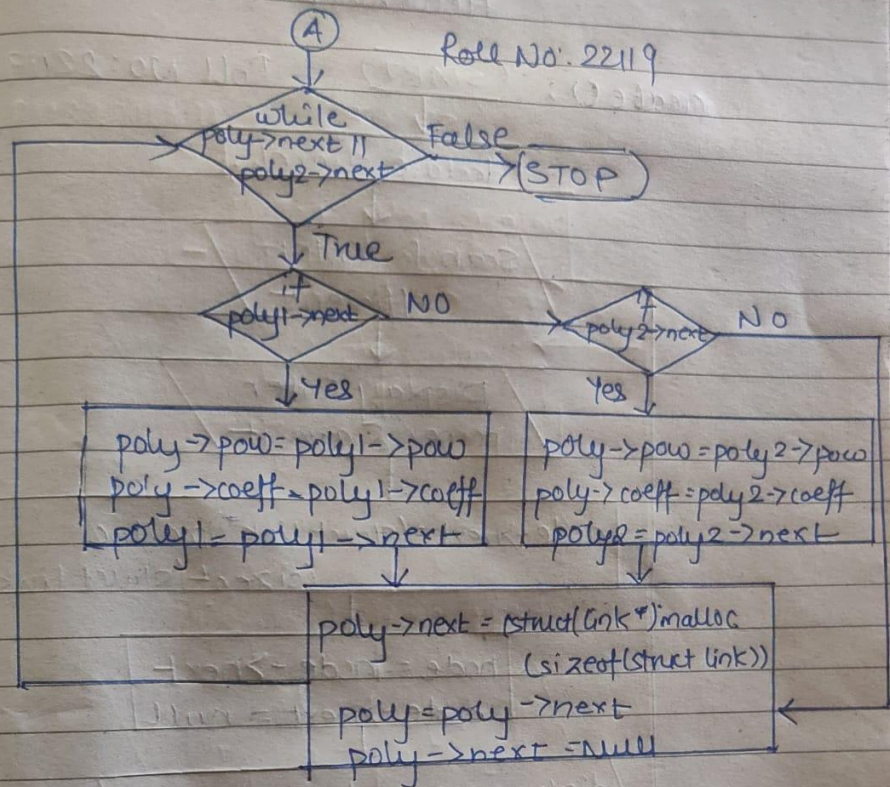 A
Roll No: 22119
while
poly->next ||
poly2->next
False
STOP
True
if
poly1->next
NO
if
poly2->next
NO
Yes
Yes
poly->pow=poly1->pow
poly->coeff=poly1->coeff
poly1=poly1->next
poly->pow=poly2->pow
poly->coeff=poly2->coeff
poly2=poly2->next
poly->next = (struct(link*)malloc
(sizeof(struct link))
poly=poly->next
poly->next=Null